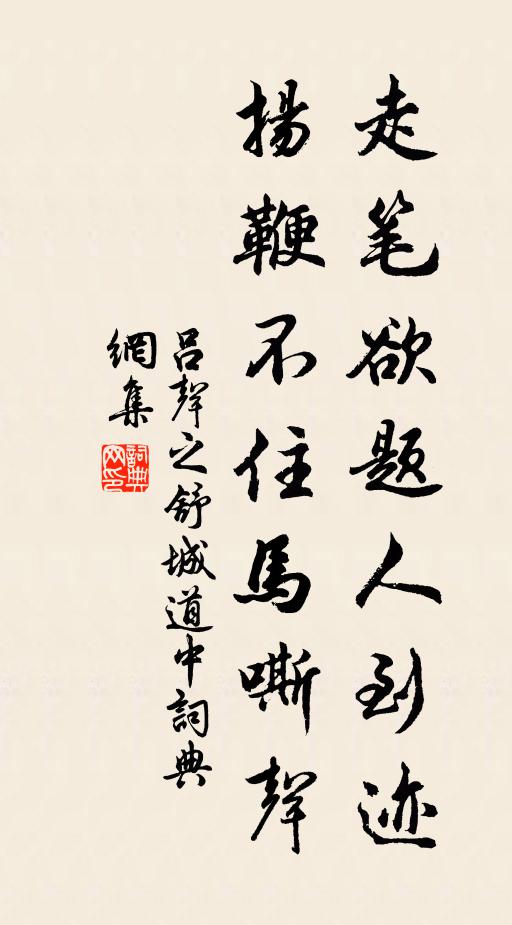 走笔欲题人到迹
揚鞭不住馬嘶聲
吕聲之舒城道中詞典
網集
詞典网印